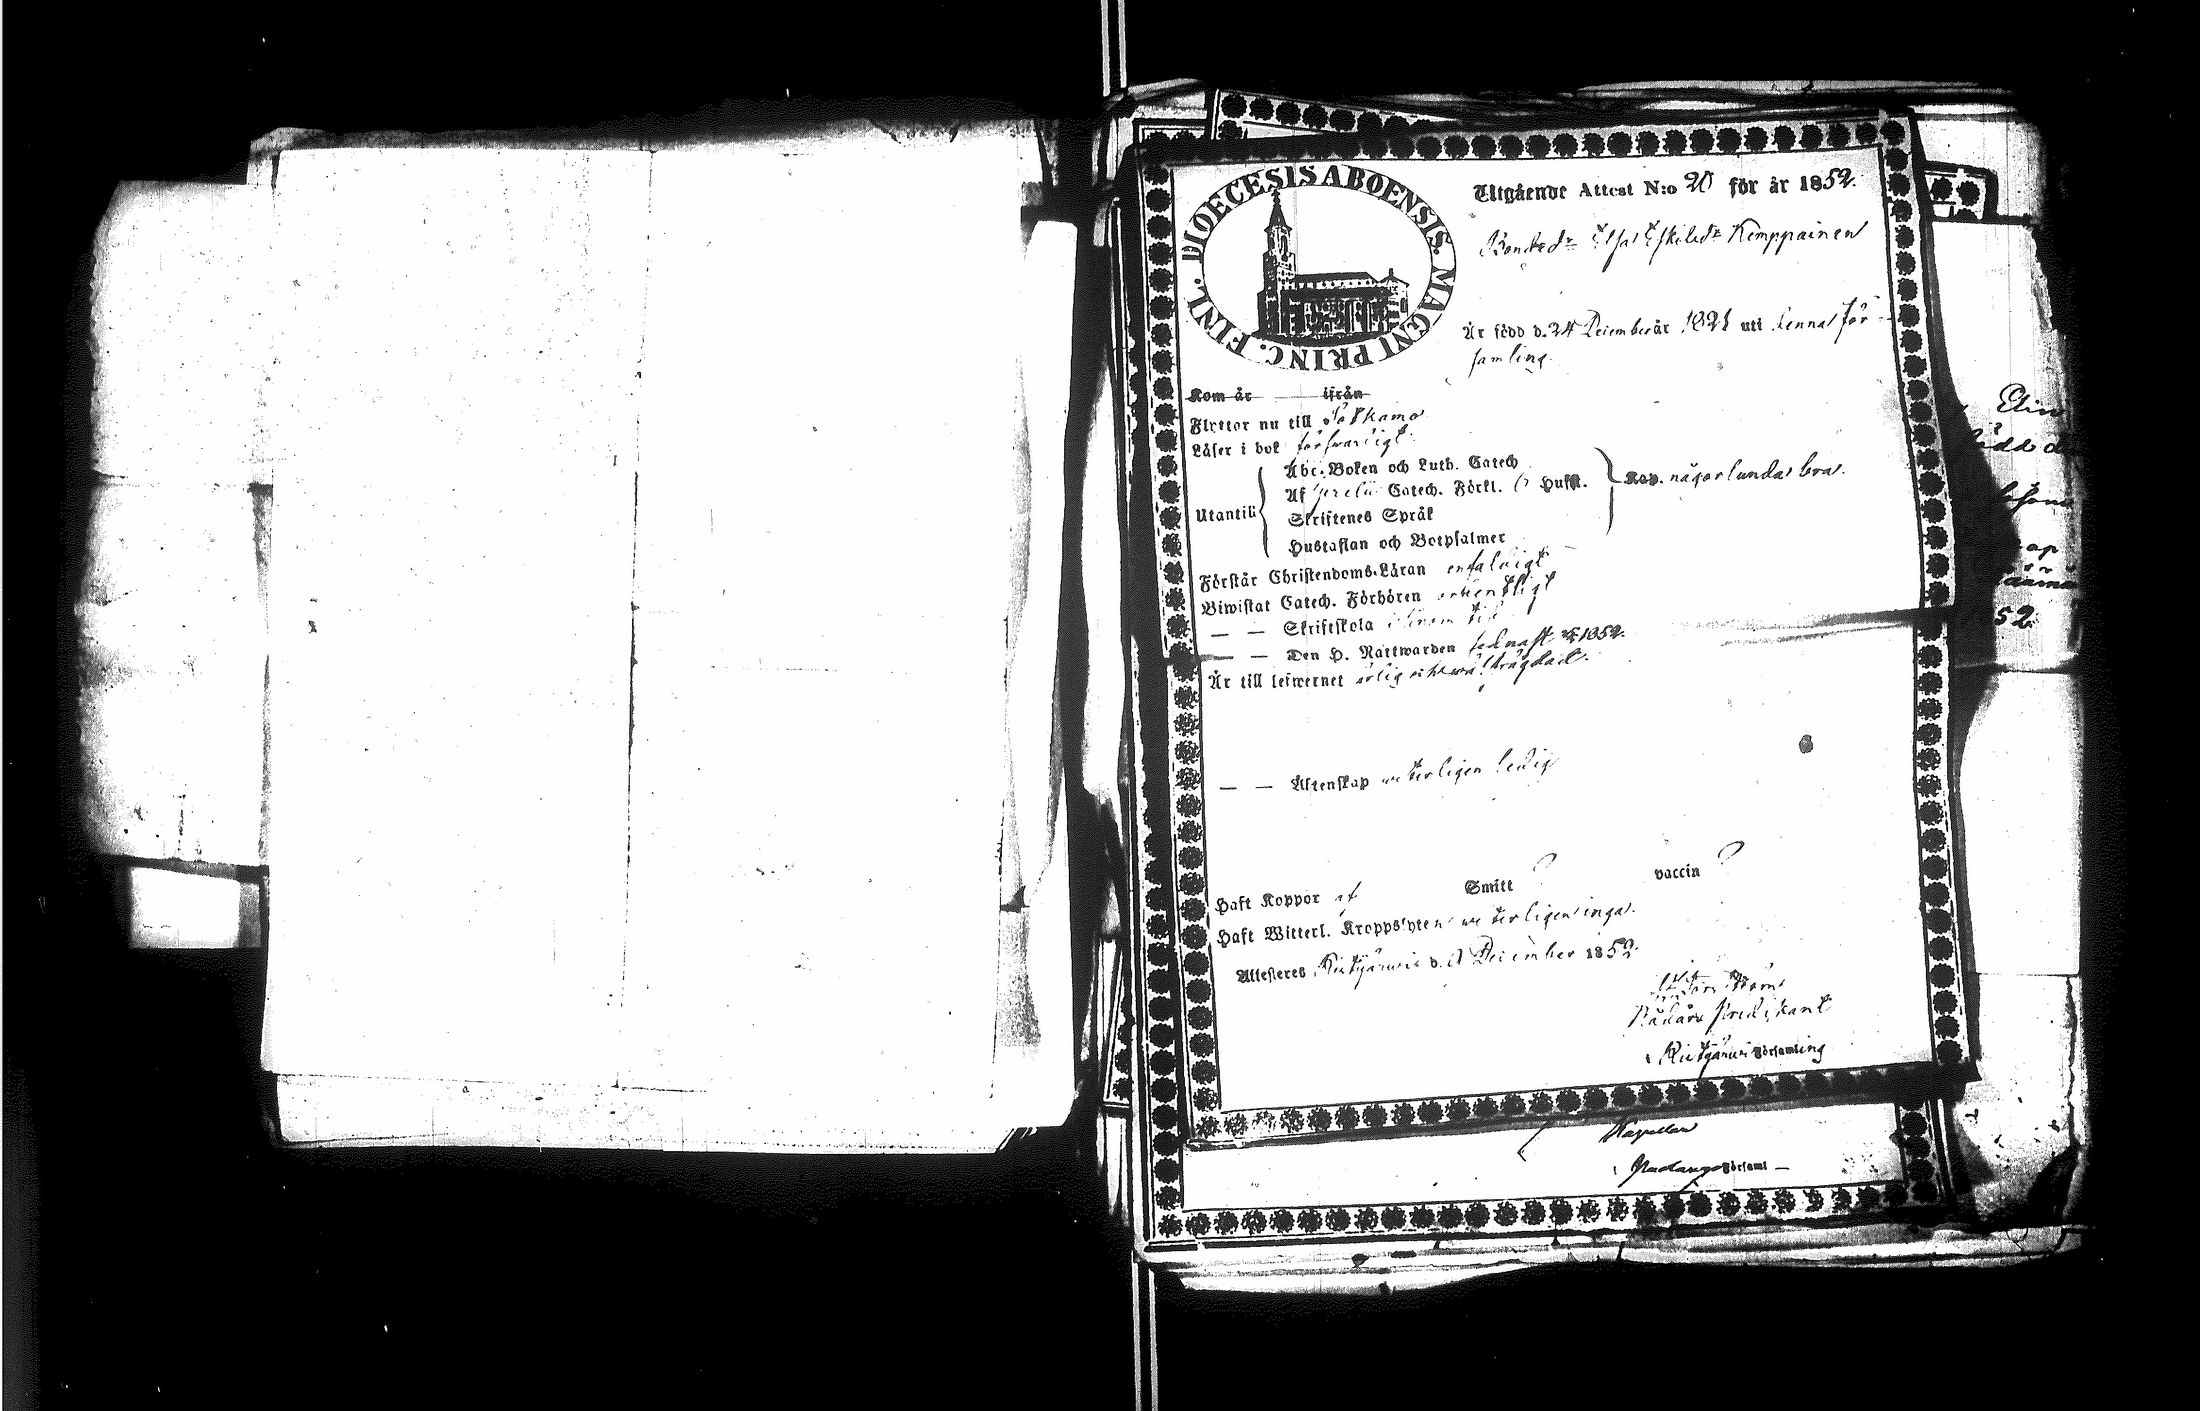 DIOECESIS ABOENSIS. MAGNI PRINC. FINL.
Utgående Attest N:o 20 för år 1852.
Bonded:r Elsa Eskilsd:r Kemppainen
Är född d. 24 December år 1821 uti denna för-
samling.
Kom år ifrån
Flyttar nu till Sotkamo
Läser i bok försvarligt.
Abc-Boken och Luth. Catech
Af Catech. Förkl. Husst.
Kap. någorlunda bra.
Utantill
Skriftenes Språk
Hustaflan och Botpsalmer
Förstår Christendoms-Läran enfaldigt
Biwistat Catech. Förhören ordentligt
— — Skriftskola
— — Den H. Nattwarden sednast 1852.
Är till lefwernet ärlig och
— — Äktenskap weterligen ledig
Haft Koppor af Smitt ? vaccin ?
Haft Witterl. Kroppslyten weterligen inga.
Attesteras Ristijärwi d. December 1852
Predikant
i Ristijärwi Församling
Elin
född d
52.
Kapellan
i Församl —